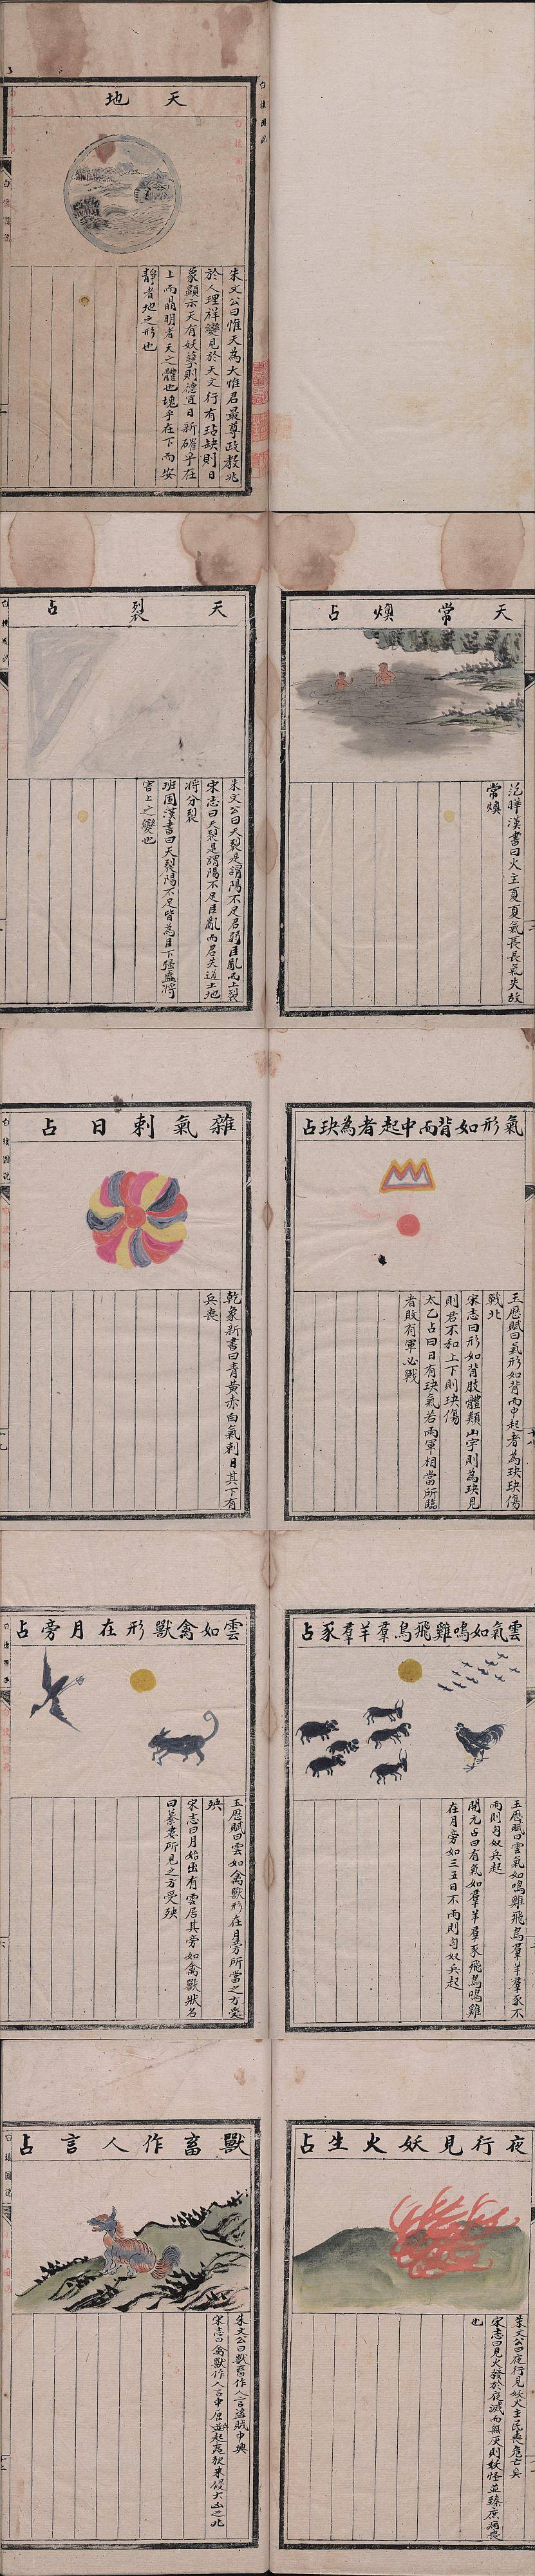 天地
朱文公曰惟天為大惟君最尊政教兆
於人理祥變見於天文行有玷缺則日
象顯示天有妖孽則德宜日新確乎在
上而晶明者天之體也塊乎在下而安
靜者地之形也
白猿圖說
天常燠占
范曄漢書曰火主夏夏氣長長氣失故
常燠
天裂占
朱文公曰天裂是謂陽不足君弱臣亂而上裂
宋志曰天裂是謂陽不足臣亂而君失道土地
將分裂
班固漢書曰天裂陽不足皆為臣下強盛將
害上之變也
白猿圖說
氣形如背而中起者為玦占
玉曆賦曰氣形如背而中起者為玦玦傷
戰北
宋志曰形如背肢體類山字則為玦見
則君不和上下則玦傷
太乙占曰日有玦氣若兩軍相當所臨
者敗有軍必戰
雜氣刺日占
乾象新書曰青黃赤白氣刺日其下有
兵喪
白猿圖說
雲氣如鳴雞飛鳥羣羊羣豕占
玉曆賦曰雲氣如鳴雞飛鳥羣羊羣豕不
雨則匈奴兵起
開元占曰有氣如羣羊羣豕飛鳥鳴雞
在月旁如三五日不雨則匈奴兵起
雲如禽獸形在月旁占
玉曆賦曰雲如禽獸形在月旁所當之方受
殃
宋志曰月始出有雲居其旁如禽獸狀名
曰蓁妻所見之方受殃
夜行見妖火生占
朱文公曰夜行見妖火主民喪危亡矣
宋志曰見火發於夜滅而無灰則妖怪並臻庶病喪
也
獸畜作人言占
朱文公曰獸畜作人言盜賊中興
宋志曰禽獸作人言中原盜起夷狄來侵大凶之兆
白猿圖說